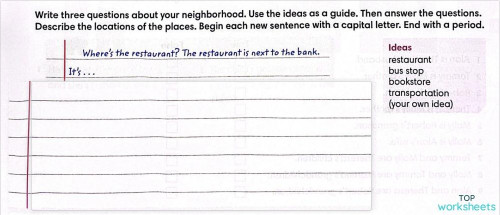 Write three questions about your neighborhood. Use the ideas as a guide. Then answer the questions.
Describe the locations of the places. Begin each new sentence with a capital letter. End with a period.
Where's the restaurant? The restaurant is next to the bank.
It's ...
Ideas
restaurant
bus stop
bookstore
transportation
(your own idea)
TOP
worksheets